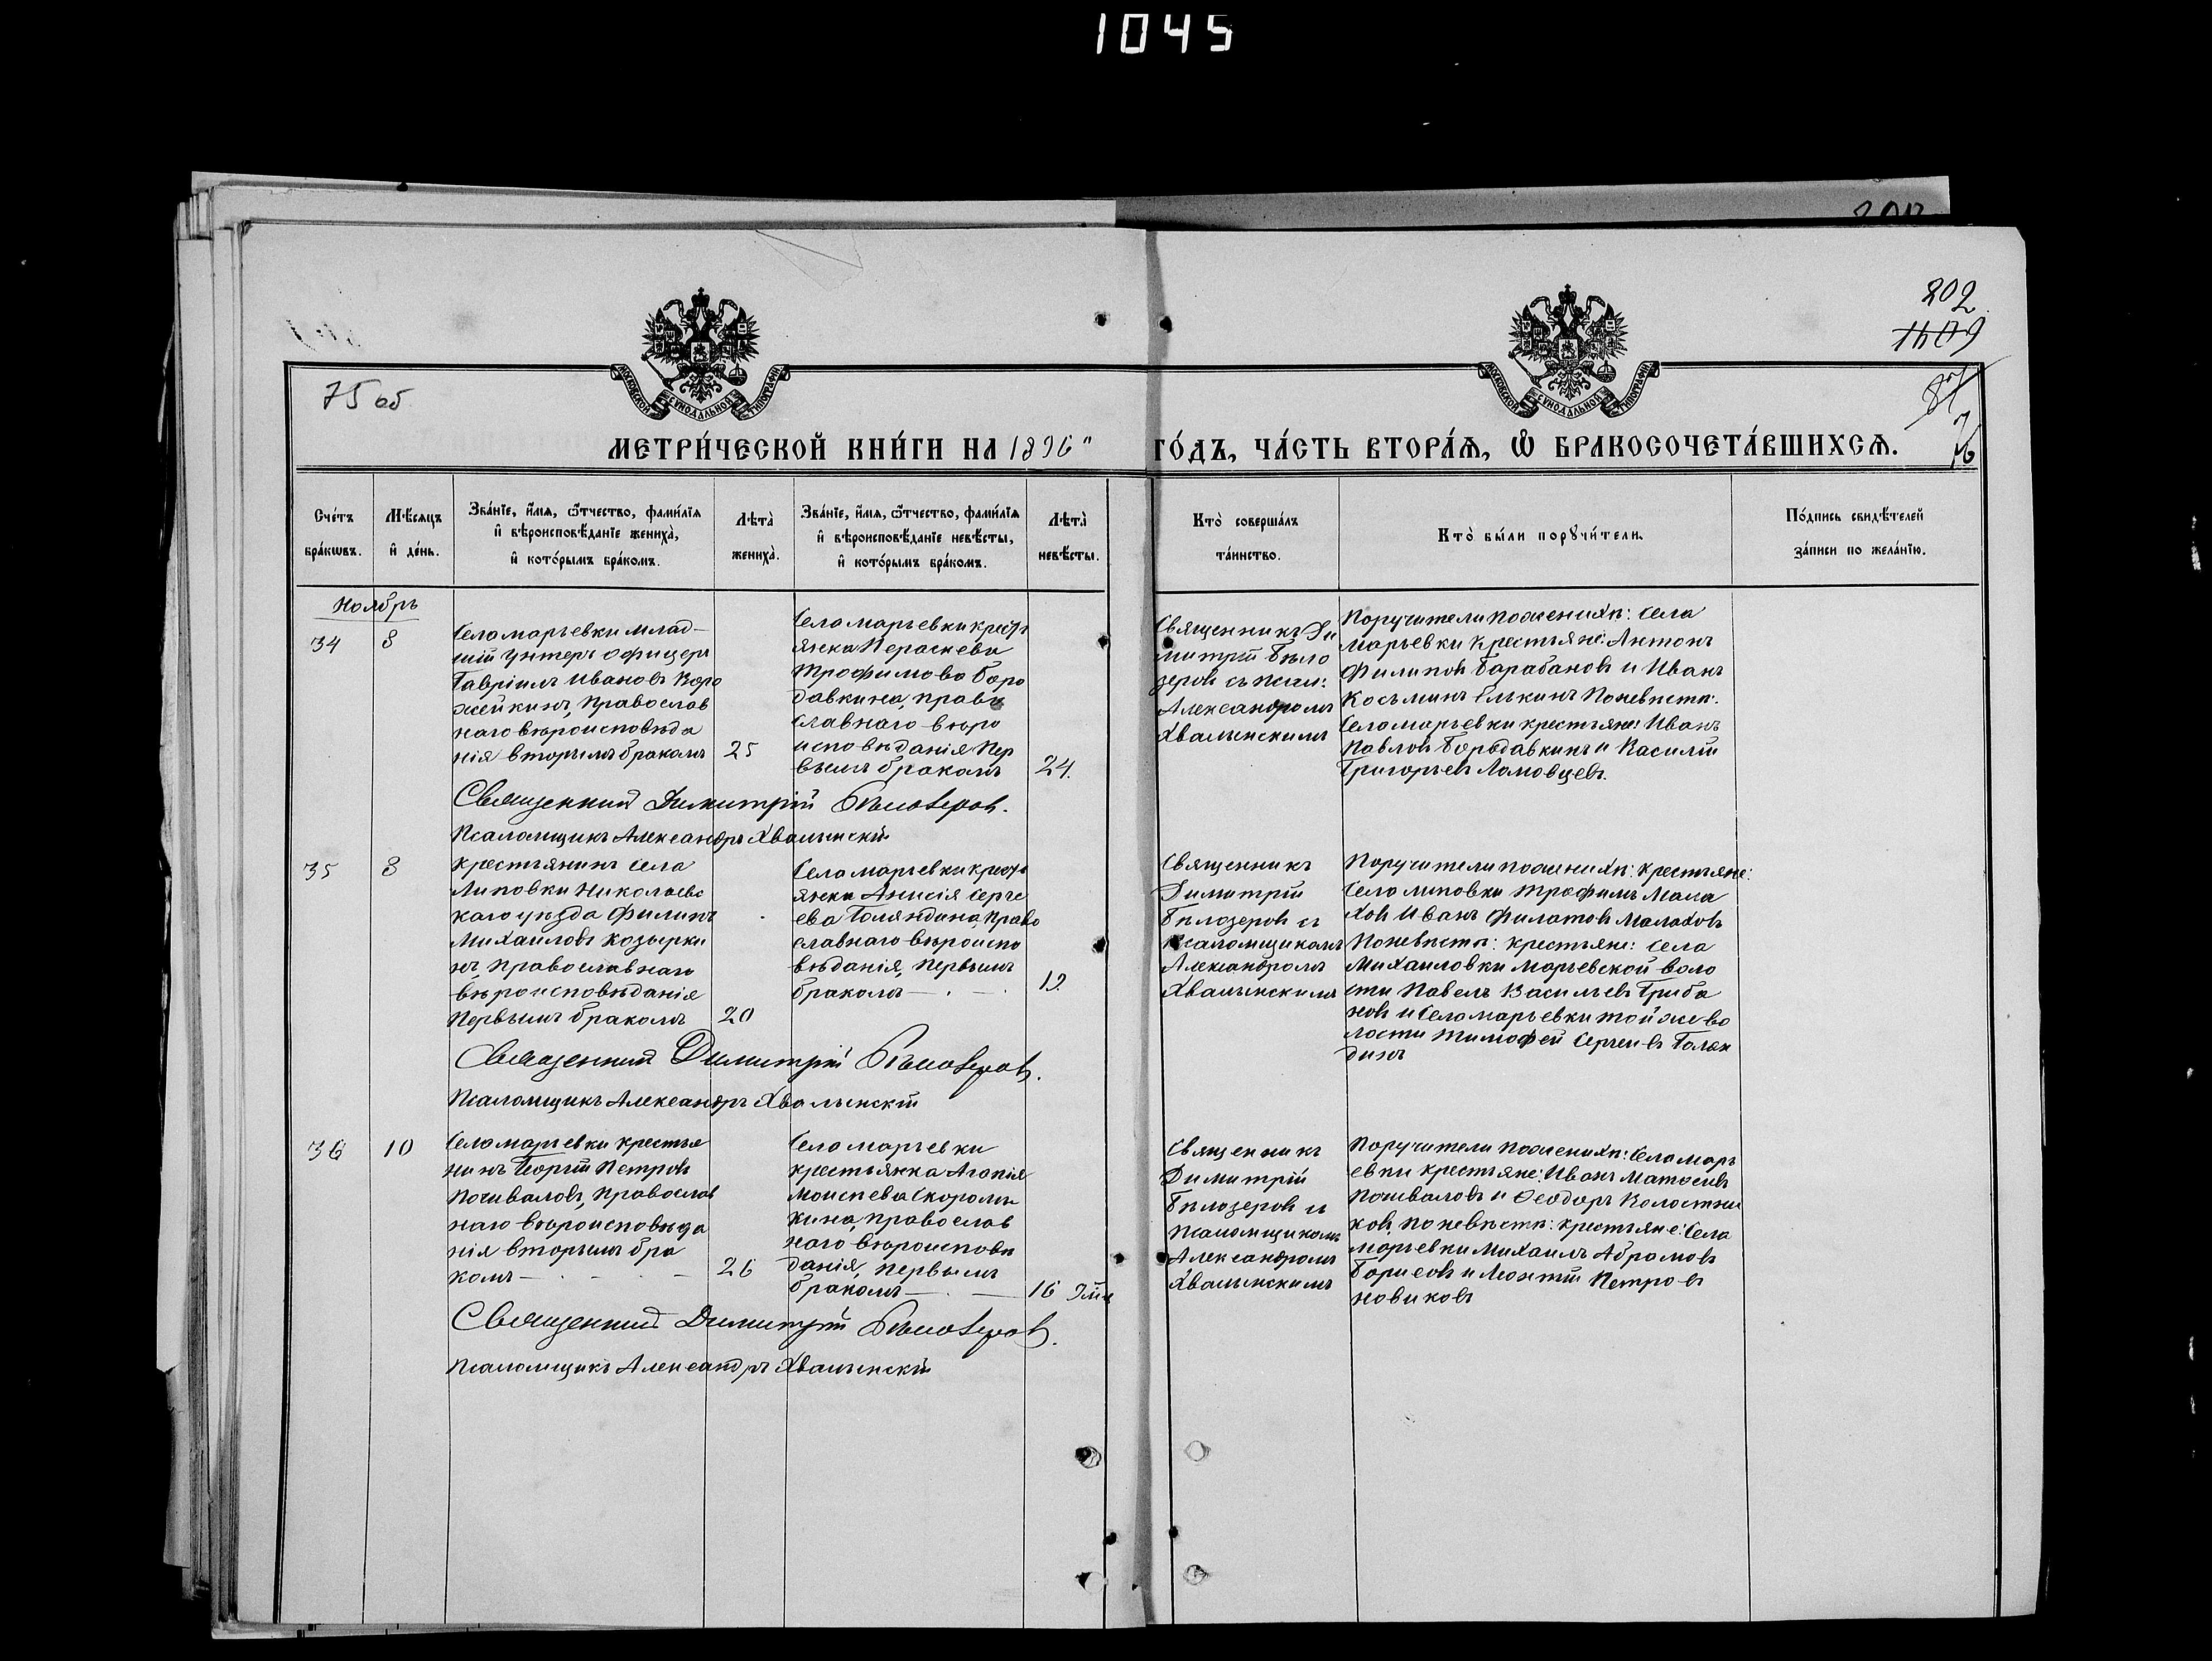 1045
802
1409
75 об
76
МОСКОВСКОЙ СѴНОДАЛЬНОЙ ТИПОГРАФІИ
МОСКОВСКОЙ СѴНОДАЛЬНОЙ ТИПОГРАФІИ
МЕТРИ́ЧЕСКОЙ КНИ́ГИ НА 1896 ГО́ДЪ, ЧА́СТЬ ВТОРА́Ѧ, Ѡ҆ БРАКОСОЧЕТА́ВШИХСѦ.
Сче́тъ бра́кѡвъ.
Мѣ́сяцъ и҆ де́нь.
Зва́нїе, и҆́мя, ѻ҆́тчество, фами́лїя
и҆ вѣроисповѣ́данїе жениха̀,
и҆ кото́рымъ бра́комъ.
Лѣ́та̀ жениха̀.
Зва́нїе, и҆́мя, ѻ҆́тчество, фами́лїя
и҆ вѣроисповѣ́данїе невѣ́сты,
и҆ кото́рымъ бра́комъ.
Лѣ́та̀ невѣ́сты.
Кто̀ соверша́лъ
та́инство.
Кто̀ бы́ли порꙋчи́тели.
По́дпись свидѣ́телей
за́писи по жела́нїю.
Ноябрь
34
8
Села Марьевки млад-
шій унтеръ офицеръ
Гавріилъ Ивановъ Коро
жейкинъ, православ
наго вѣроисповѣда
нія вторымъ бракомъ
25
Села Марьевки кресть
янка Параскева
Трофимова Боро
давкина, право
славнаго вѣро
исповѣданія пер
вымъ бракомъ
24.
Священникъ Ди
митрій Бѣло
зеровъ съ псал:
Александромъ
Хвалынскимъ
Поручители по женихѣ: села
Марьевки крестьяне: Антонъ
Филиповъ Барабановъ и Иванъ
Косьминъ Елькинъ по невѣстѣ:
Села Марьевки крестьяне: Иванъ
Павловъ Бородавкинъ и Василій
Григорьевъ Ломовцевъ.
Священникъ Димитрій Бѣлозеровъ.
Псаломщикъ Александръ Хвалынскій
35
8
Крестьянинъ села
Липовки Николаевс
каго уѣзда Филипъ
Михаиловъ Козырки
нъ, православнаго
вѣроисповѣданія
первымъ бракомъ
20
Села Марьевки кресть
янка Анисія Серге
ева Голяндина, право
славнаго вѣроиспо
вѣданія, первымъ
бракомъ
19.
Священникъ
Димитрій
Бѣлозеровъ съ
псаломщикомъ
Александромъ
Хвалынскимъ
Поручители по женихѣ: крестьяне:
Села Липовки Трофимъ Мала
ховъ Иванъ Филатовъ Малаховъ
По невѣстѣ: крестьяне: села
Михаиловки Марьевской воло
сти Павелъ Васильевъ Гриба
новъ и села Марьевки той же во
лости Тимофей Сергеевъ Голян
динъ
Священникъ Димитрій Бѣлозеровъ.
Псаломщикъ Александръ Хвалынскій
36
10
Села Марьевки крестья
нинъ Георгій Петровъ
Почиваловъ, православ
наго вѣроисповѣда
нія вторымъ бра
комъ
26
Села Марьевки
крестьянка Агапія
Моисеева Скоромы
кина, православ
наго вѣроисповѣ
данія, первымъ
бракомъ
16
Священникъ
Димитрій
Бѣлозеровъ съ
псаломщикомъ
Александромъ
Хвалынскимъ
Поручители по женихѣ: Села Марь
евки крестьяне: Иванъ Матвеевъ
Почиваловъ и Ѳеодоръ Колостни
ковъ, по невѣстѣ: крестьяне: Села
Марьевки Михаилъ Абрамовъ
Борисовъ и Леонтій Петровъ
Новиковъ
Священникъ Димитрій Бѣлозеровъ.
Псаломщикъ Александръ Хвалынскій